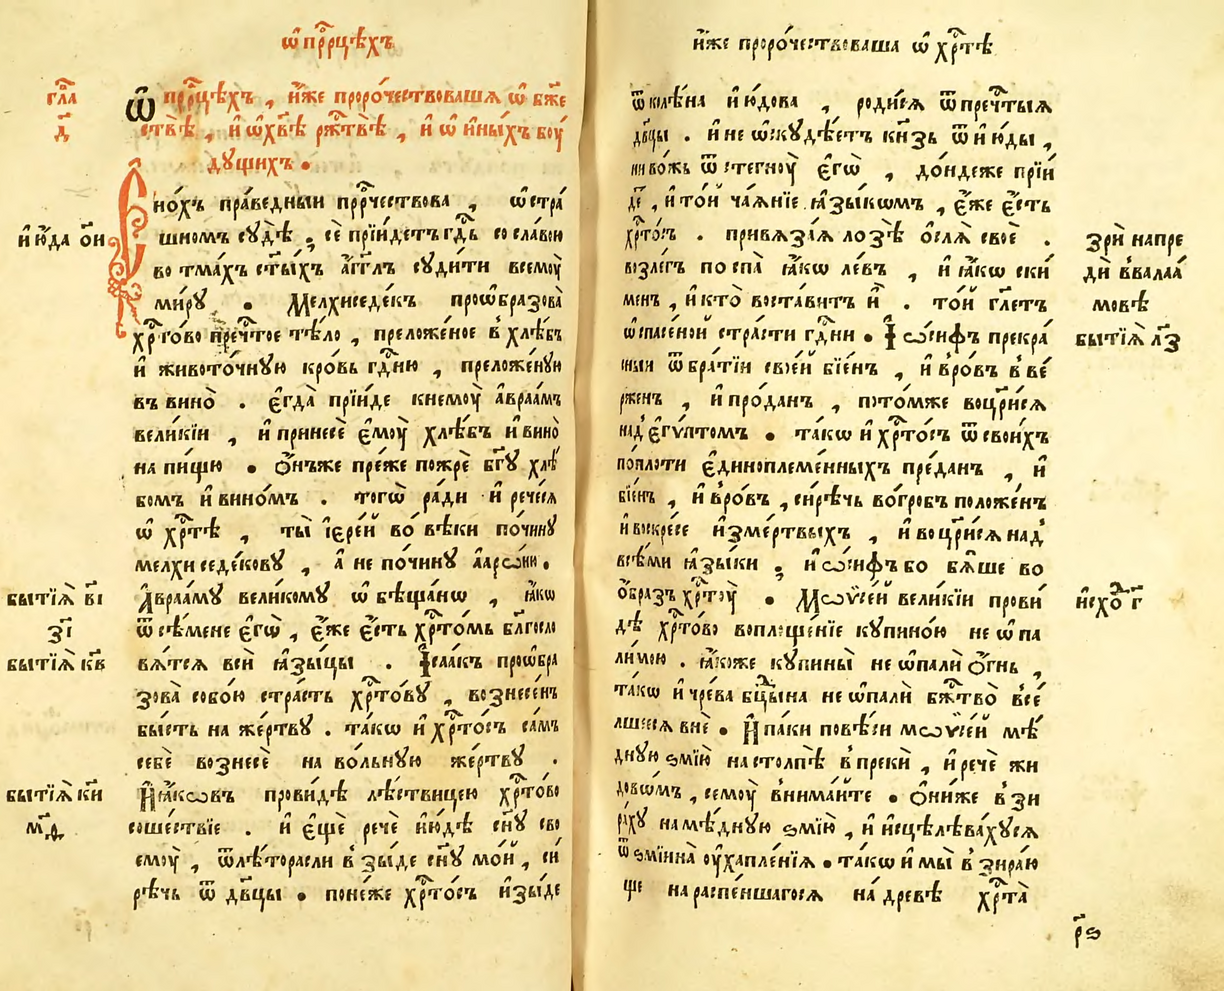 ѡ҃ прⷪ҇рцѣхъ
гла҃
д҃
Ѡ҃ прⷪ҇рцѣхъ , и҆́же проро́чествовашѧ ѡ҆ бж҃е
ствѣ̀ , и҆ ѡ҆ хв҃ѣ ржⷭ҇твѣ̀ , и҆ ѡ҆ и҆ны́хъ бꙋ
дꙋщихъ .
Е҆но́хъ пра́ведныи прⷪ҇рчествова , ѡ҆ стра́
шномъ сꙋдѣ̀ . сѐ прїи́детъ гдⷭ҇ь со сла́вою
во тма́хъ ст҃ы́хъ а҆́гг҃лъ сꙋди́ти всемꙋ̀
ми́рꙋ . Мелхиседе́къ проѡбразова̀
хрⷭ҇то́во пречⷭ҇тое тѣ́ло , преложе́ное в̾ хлѣ́бъ
и҆ живото́чнꙋю кро́вь гдⷭ҇ню , преложе́нꙋю
въ вино̀ . є҆гда̀ прїи́де к немꙋ̀ а҆враа́мъ
вели́кїи , и҆ принесѐ є҆мꙋ̀ хлѣ́бъ и҆ вино̀
на пи́щꙋ . ѻ҆́нъже пре́же пожрѐ бг҃ꙋ хлѣ́
бомъ и҆ вино́мъ . тогѡ̀ ра́ди и҆ рече́сѧ
ѡ҆ хрⷭ҇тѣ̀ , ты̀ і҆ере́й во вѣ́ки по чи́нꙋ
мелхиседе́ковꙋ , а҆ не по чи́нꙋ а҆арѡ́ни .
А҆враа́мꙋ вели́комꙋ ѡ҆бѣща́нѡ , ꙗ҆́кѡ
ѿ сѣ́мене є҆гѡ̀ , є҆́же є҆́сть хрⷭ҇то́мъ бл҃госло
вѧ́тсѧ вси́ ꙗ҆зы́цы . І҆саа́къ проѡбра
зова̀ собо́ю стра́сть хрⷭ҇то́вꙋ , вознесе́нъ
бы́сть на же́ртвꙋ . та́кѡ и҆ хрⷭ҇то́съ са́мъ
себѐ вознесѐ на во́льнꙋю же́ртвꙋ .
И҆ꙗ҆́кѡвъ прови́дѣ лѣ́ствицею хрⷭ҇то́во
соше́ствїе . и҆ є҆щѐ речѐ і҆ю́дѣ сн҃ꙋ сво
емꙋ̀ , ѿ лѣ́торасли взы́де сн҃ꙋ мо́й , си
рѣчь ѿ дв҃цы . поне́же хрⷭ҇то́съ и҆зы́де
и҆ ю҆́да ѻ҆́н
бытїѧ̀ в҃і
з҃і
бытїѧ̀ к҃в
бытїѧ̀ к҃и
м҃ѳ
и҆́же проро́чествоваша ѡ҆ хрⷭ҇тѣ̀
ѿ колѣ́на и҆ ю҆́дова , роди́сѧ ѿ пречⷭ҇тыѧ
дв҃цы . и҆ не ѡ҆скꙋдѣ́етъ кнѧ́зь ѿ и҆ ю҆́ды ,
ни во́жь ѿ стегнꙋ̀ є҆гѡ̀ , до́ндеже прїи́
де , и҆ то́й ча́ѧнїе ꙗ҆зы́кѡмъ , є҆́же є҆́сть
хрⷭ҇то́съ . привѧза́ѧ ло́зѣ ѻ҆слѧ̀ своѐ .
возле́гъ поспа̀ ꙗ҆́кѡ ле́въ , и҆ ꙗ҆́кѡ ски́
менъ , и҆ кто̀ воста́витъ и҆̀ . то́й гл҃етъ
ѡ҆ спасе́ной стра́сти гдⷭ҇ни . І҆ѡ́сифъ прекра́
сныи ѿ бра́тїи свое́й бїе́нъ , и҆ в̾ро́въ в̾ве́
рженъ , и҆ про́данъ , пото́мже воцр҃и́сѧ
над̾ є҆гѵ́птомъ . та́кѡ и҆ хрⷭ҇то́съ ѿ свои́хъ
по пло́ти є҆диноплеме́нныхъ пре́данъ , и҆
бїе́нъ , и҆ в̾ро́въ , си́рѣчь во гро́бъ поло́женъ
и҆ воскре́се и҆зме́ртвыхъ , и҆ воцр҃и́сѧ над̾
всѣ́ми ꙗ҆зы́ки . и҆ ѡ҆́сифъ бо бѧ́ше во
ѻ҆́бразъ хрⷭ҇тꙋ̀ . Мѡѷсе́й вели́кїи прови́
дѣ хрⷭ҇то́во воплоще́нїе кꙋпино́ю не ѡ҆па
ли́мою . ꙗ҆́коже кꙋпины̀ не ѡ҆палѝ ѻ҆́гнь ,
та́кѡ и҆ чре́ва бцⷣы на не ѡ҆палѝ бжⷭ҇тво̀ все́
льшеесѧ в нѐ . И҆ па́ки пове́си мѡѷсе́й мѣ́
днꙋю ѕмїю̀ на столпѣ̀ в̾прекѝ , и҆ речѐ жи
до́вѡмъ , семꙋ̀ внима́йте . ѻ҆ни́же взи
ра́хꙋ на мѣ́днꙋю ѕмїю̀ , и҆ и҆сцѣлѣва́хꙋсѧ
ѿ ѕмїи́на ᲂу҆хапле́нїѧ . та́кѡ и҆ мы̀ взира́ю
ще на распе́ншагосѧ на дре́вѣ хрⷭ҇та̀
зрѝ напре
дѝ в̾ валаа́
мовѣ
бытїѧ̀ л҃з
и҆схо́ⷣ г҃
р҃ѕ